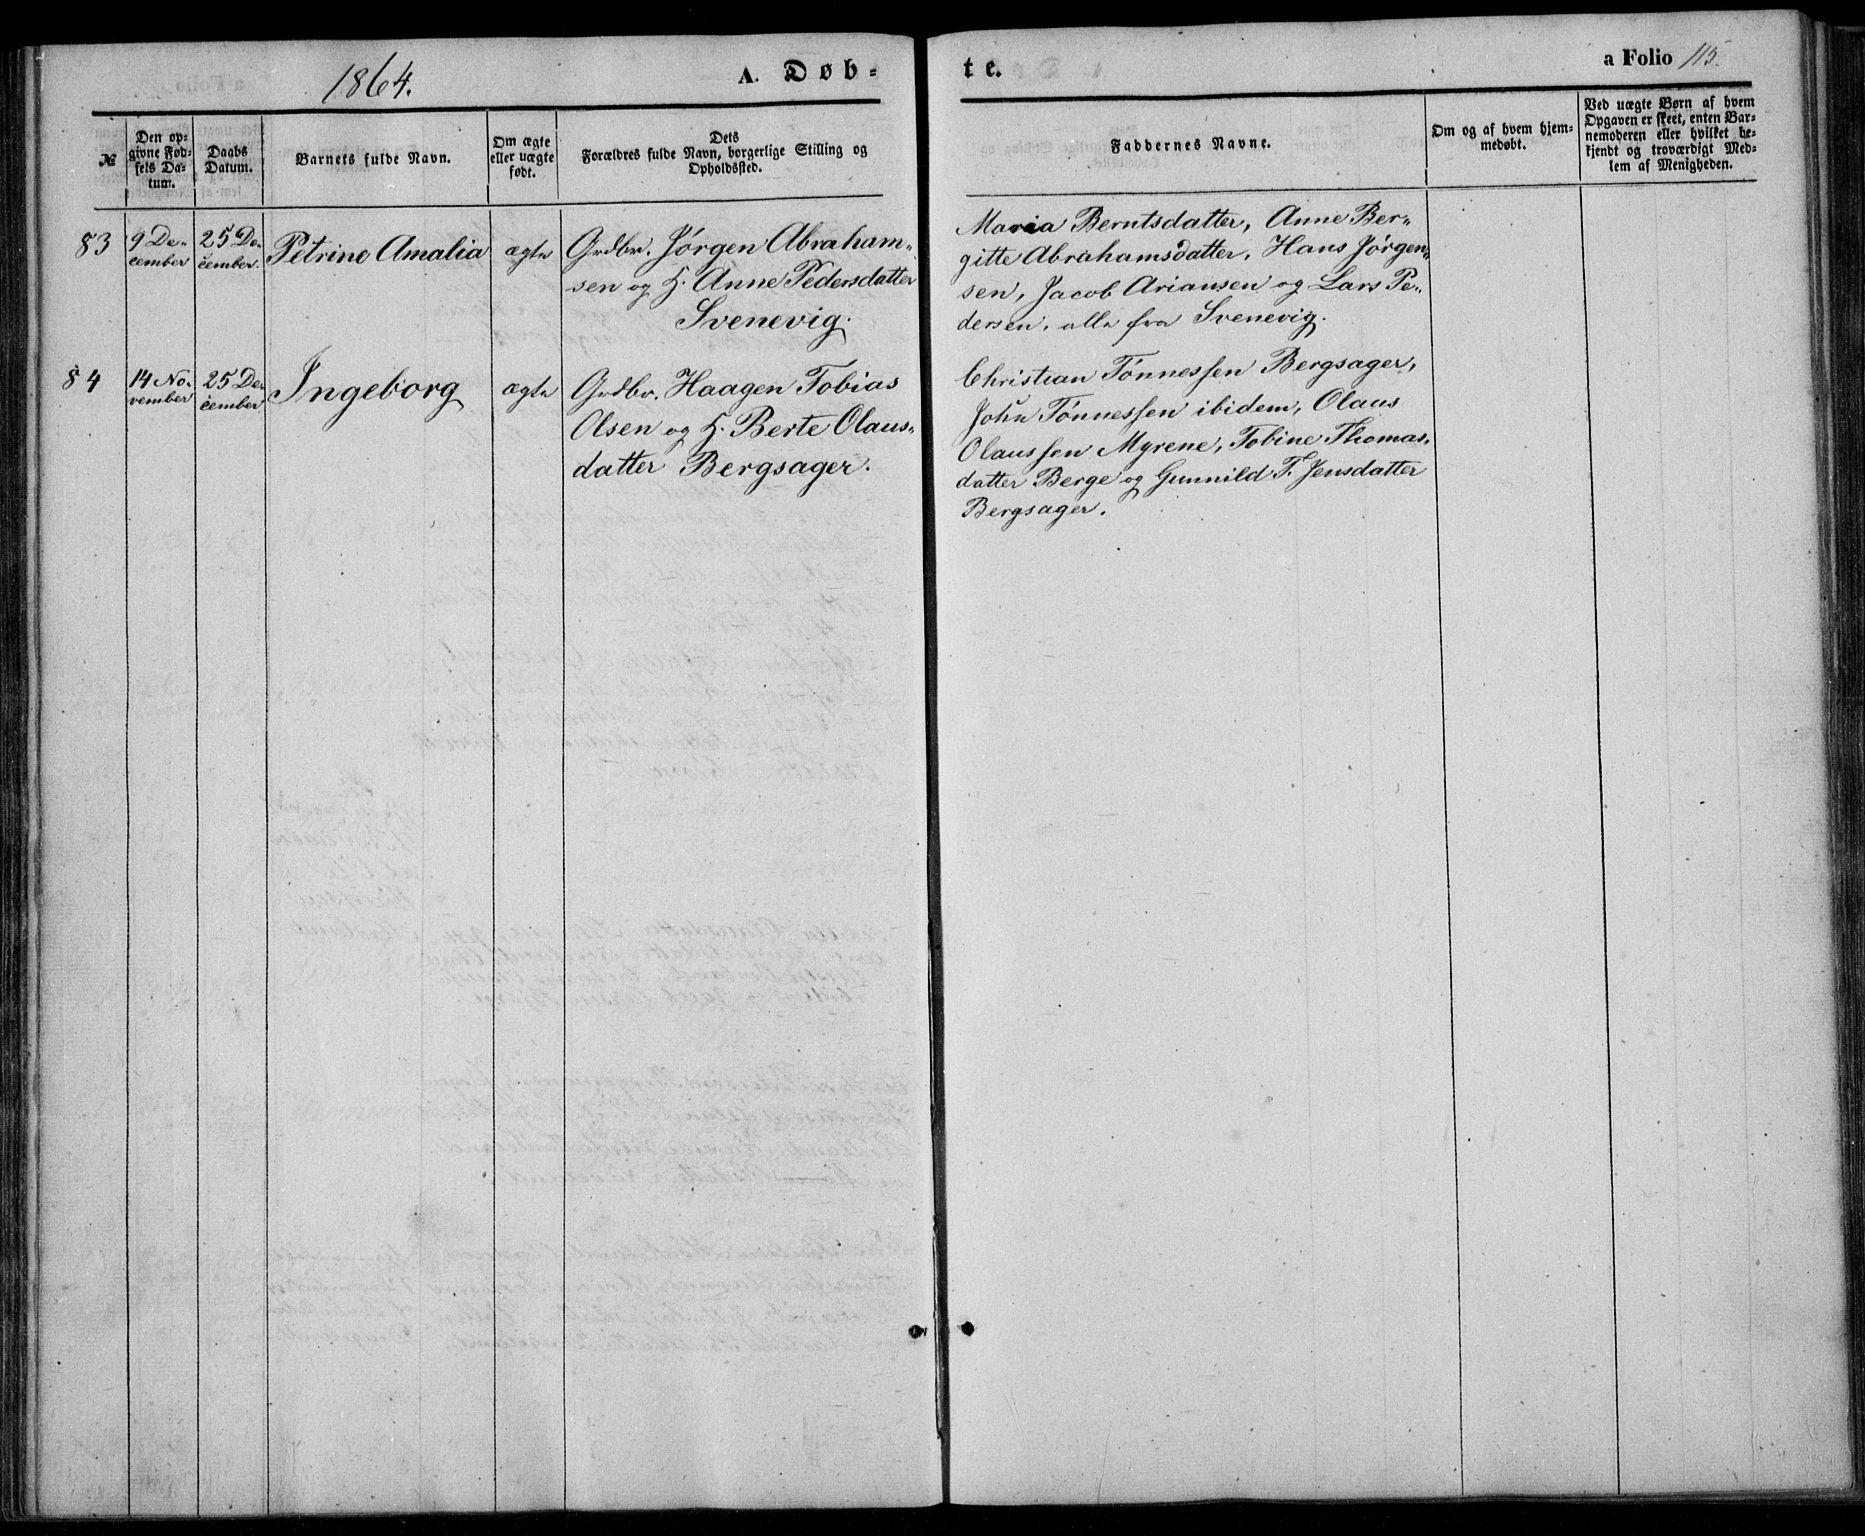 1864.
A. Døb-
te.
a Folio 115.
№
Den op-
givne Fød-
sels Da-
tum.
Daabs
Datum.
Barnets fulde Navn.
Om ægte
eller uægte
født.
Dets
Forældres fulde Navn, borgerlige Stilling og
Opholdssted.
Faddernes Navne.
Om og af hvem hjem-
medøbt.
Ved uægte Børn af hvem
Opgaven er skeet, enten Bar-
nemoderen eller hvilket be-
kjendt og troværdigt Med-
lem af Menigheden.
83
9 De-
cember
25 De-
cember.
Petrine Amalia
ægte
Grdbr. Jørgen Abraham-
sen og H. Anne Pedersdatter
Svenevig.
Maria Berntsdatter, Anne Ber-
gitte Abrahamsdatter, Hans Jørgen-
sen, Jacob Ariansen og Lars Pe-
dersen, alle fra Svenevig.
84
14 No-
vember
25 De-
cember
Ingeborg
ægte
Grdbr. Haagen Tobias
Olsen og H. Berte Olaus-
datter Bergsager.
Christian Tønnessen Bergsager,
John Tønnessen ibidem, Olaus
Olaussen Myrene, Tobine Thomas-
datter Berge og Gunnild T. Jensdatter
Bergsager.